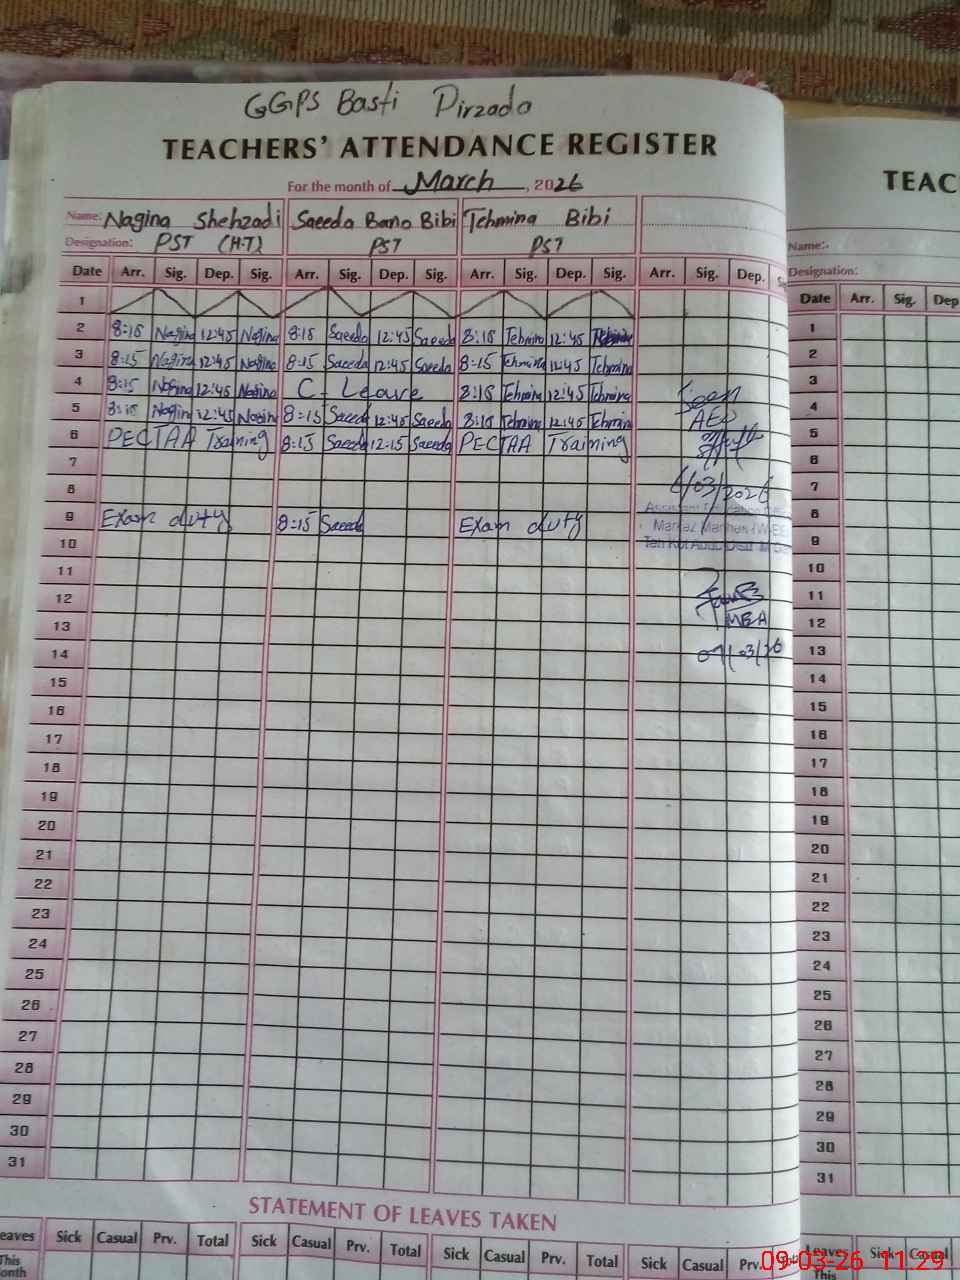 GGPS Basti Pirzada
TEACHERS' ATTENDANCE REGISTER
For the month of March, 2026
Name: Nagina Shehzadi Saeeda Bano Bibi Tehmina Bibi
Designation: PST (H.T) PST PST
Date Arr. Sig. Dep. Sig. Arr. Sig. Dep. Sig. Arr. Sig. Dep. Sig. Arr. Sig. Dep.
1
2 8:15 Nagina 12:45 Nagina 8:15 Saeeda 12:45 Saeeda 8:15 Tehmina 12:45 Tehmina
3 8:15 Nagina 12:45 Nagina 8:15 Saeeda 12:45 Saeeda 8:15 Tehmina 12:45 Tehmina
4 8:15 Nagina 12:45 Nagina C. Leave 8:15 Tehmina 12:45 Tehmina Seen
5 8:15 Nagina 12:45 Nagina 8:15 Saeeda 12:45 Saeeda 8:15 Tehmina 12:45 Tehmina AEO
6 PECTAA Training 8:15 Saeeda 12:15 Saeeda PECTAA Training
7
6/03/2026
8
9 Exam duty 8:15 Saeeda Exam duty
10
11
12
MEA
13
14 09/03/26
15
16
17
18
19
20
21
22
23
24
25
26
27
28
29
30
31
STATEMENT OF LEAVES TAKEN
eaves Sick Casual Prv. Total Sick Casual Prv. Total Sick Casual Prv. Total Sick Casual Prv.
This
onth
TEAC
Name:-
Designation:
Date Arr. Sig. Dep
1
2
3
4
5
6
7
8
9
10
11
12
13
14
15
16
17
18
19
20
21
22
23
24
25
26
27
28
29
30
31
Leaves Sick Casual
This
09-03-26 11:29